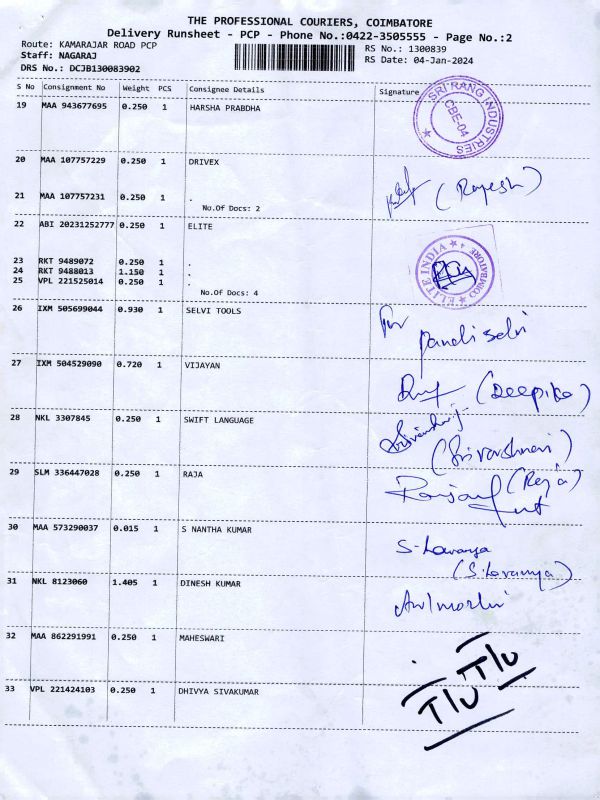 THE PROFESSIONAL COURIERS, COIMBATORE
Delivery Runsheet - PCP - Phone No.:0422-3505555 - Page No.:2
Route: KAMARAJAR ROAD PCP RS No.: 1300839
Staff: NAGARAJ RS Date: 04-Jan-2024
DRS No.: DCJB130083902
S No Consignment No Weight PCS Consignee Details Signature
19 MAA 943677695 0.250 1 HARSHA PRABDHA
SRI RANG INDUSTRIES
CBE-04
20 MAA 107757229 0.250 1 DRIVEX
(Rajesh)
21 MAA 107757231 0.250 1 .
No.Of Docs: 2
22 ABI 20231252777 0.250 1 ELITE
ELITE INDIA COIMBATORE
23 RKT 9489072 0.250 1 .
24 RKT 9488013 1.150 1 .
25 VPL 221525014 0.250 1 .
No.Of Docs: 4
26 IXM 505699044 0.930 1 SELVI TOOLS
Pandiselvi
27 IXM 504529090 0.720 1 VIJAYAN
(Deepika)
28 NKL 3307845 0.250 1 SWIFT LANGUAGE
(Srivarshnavi)
29 SLM 336447028 0.250 1 RAJA
(Raja)
30 MAA 573290037 0.015 1 S NANTHA KUMAR
S. Lavanya
(S. Lavanya)
31 NKL 8123060 1.405 1 DINESH KUMAR
32 MAA 862291991 0.250 1 MAHESWARI
T/U
33 VPL 221424103 0.250 1 DHIVYA SIVAKUMAR
T/U